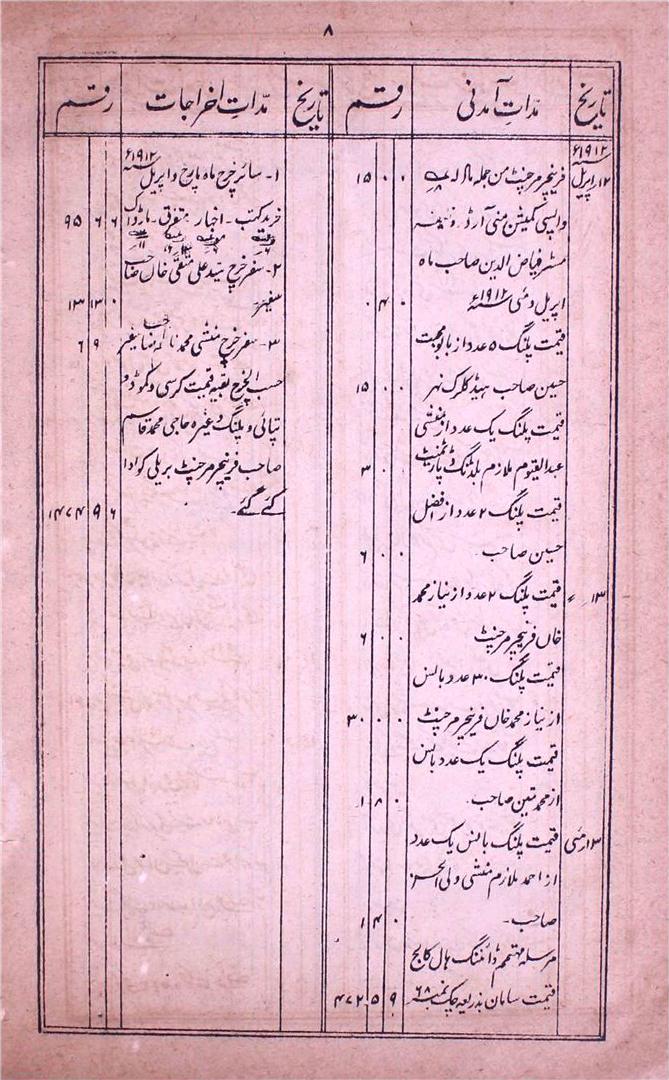 ۸
تاریخ مدّاتِ آمدنی رقم
۱۹۱۲ء
۱۲ اپریل فرنیچر مرچنٹ من جملہ ۱۵ ۰ ۰
واپسی کمیشن منی آرڈر وظیفہ
مسٹر فیاض الدین صاحب ماہ
اپریل و مئی ۱۹۱۲ء ۰ ۴ ۰
قیمت پلنگ ۵ عدد از بابو محبت
حسین صاحب ہیڈ کلرک نہر ۱۵ ۰ ۰
قیمت پلنگ یک عدد از منشی
عبدالقیوم ملازم بلڈنگ ڈپارٹمنٹ ۳ ۰ ۰
قیمت پلنگ ۲ عدد از افضل
حسین صاحب ۶ ۰ ۰
۱۳ ؍ ء قیمت پلنگ ۲ عدد از نیاز محمد
خاں فرنیچر مرچنٹ ۶ ۰ ۰
قیمت پلنگ ۳۰ عدد بانس
از نیاز محمد خاں فرنیچر مرچنٹ ۳۰ ۰ ۰
قیمت پلنگ یک عدد بانس
از محمد متین صاحب ۱ ۸ ۰
۱۳ مئی قیمت پلنگ بانس یک عدد
از احمد ملازم منشی ولی الحسن
صاحب۔ ۱ ۴ ۰
مرسلہ مہتمم ڈائننگ ہال کالج
قیمت سامان بذریعہ چک نمبر ۶۸ ۴۷۲ ۵ ۹
تاریخ مدّات اخراجات رقم
۱۔ سائر خرچ ماہ مارچ و اپریل ۱۹۱۲ء
خرید کتب۔ اخبار متفرق۔ ۹۵ ۶ ۶
۲۔ سفر خرچ سید علی متقی خاں صاحب
سفیر ۱۳ ۱۳ ۰
۳۔ سفر خرچ منشی محمد صاحب سفیر ۶ ۹
حسب الخرچ بقیہ قیمت کرسی و کموڈ و
تپائی و پلنگ وغیرہ حاجی محمد قاسم
صاحب فرنیچر مرچنٹ بریلی کو ادا
کئے گئے۔ ۱۴۷۴ ۹ ۶